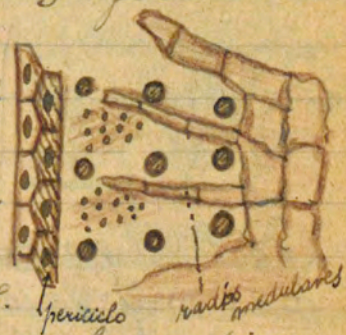 periciclo
radios medulares